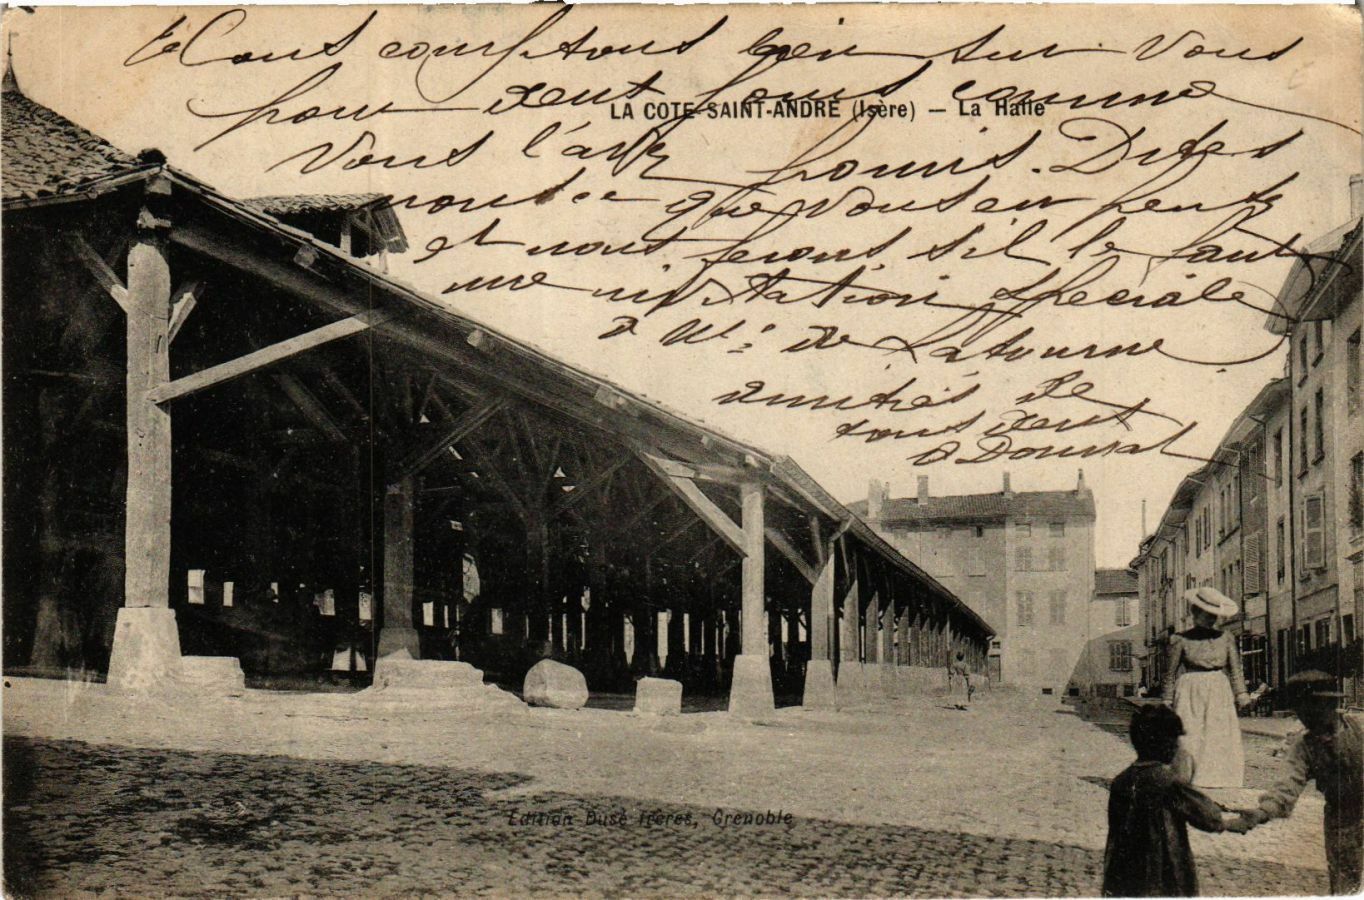 Nous comptons bien sur vous
pour deux jours comme
LA COTE-SAINT-ANDRÉ (Isère) — La Halle
vous l'avez promis. Dites
nous ce que vous en pensez
et nous ferons s'il le faut
une invitation spéciale
à Mr de Latourne
amitiés de
tous deux
Edition Dusé frères, Grenoble